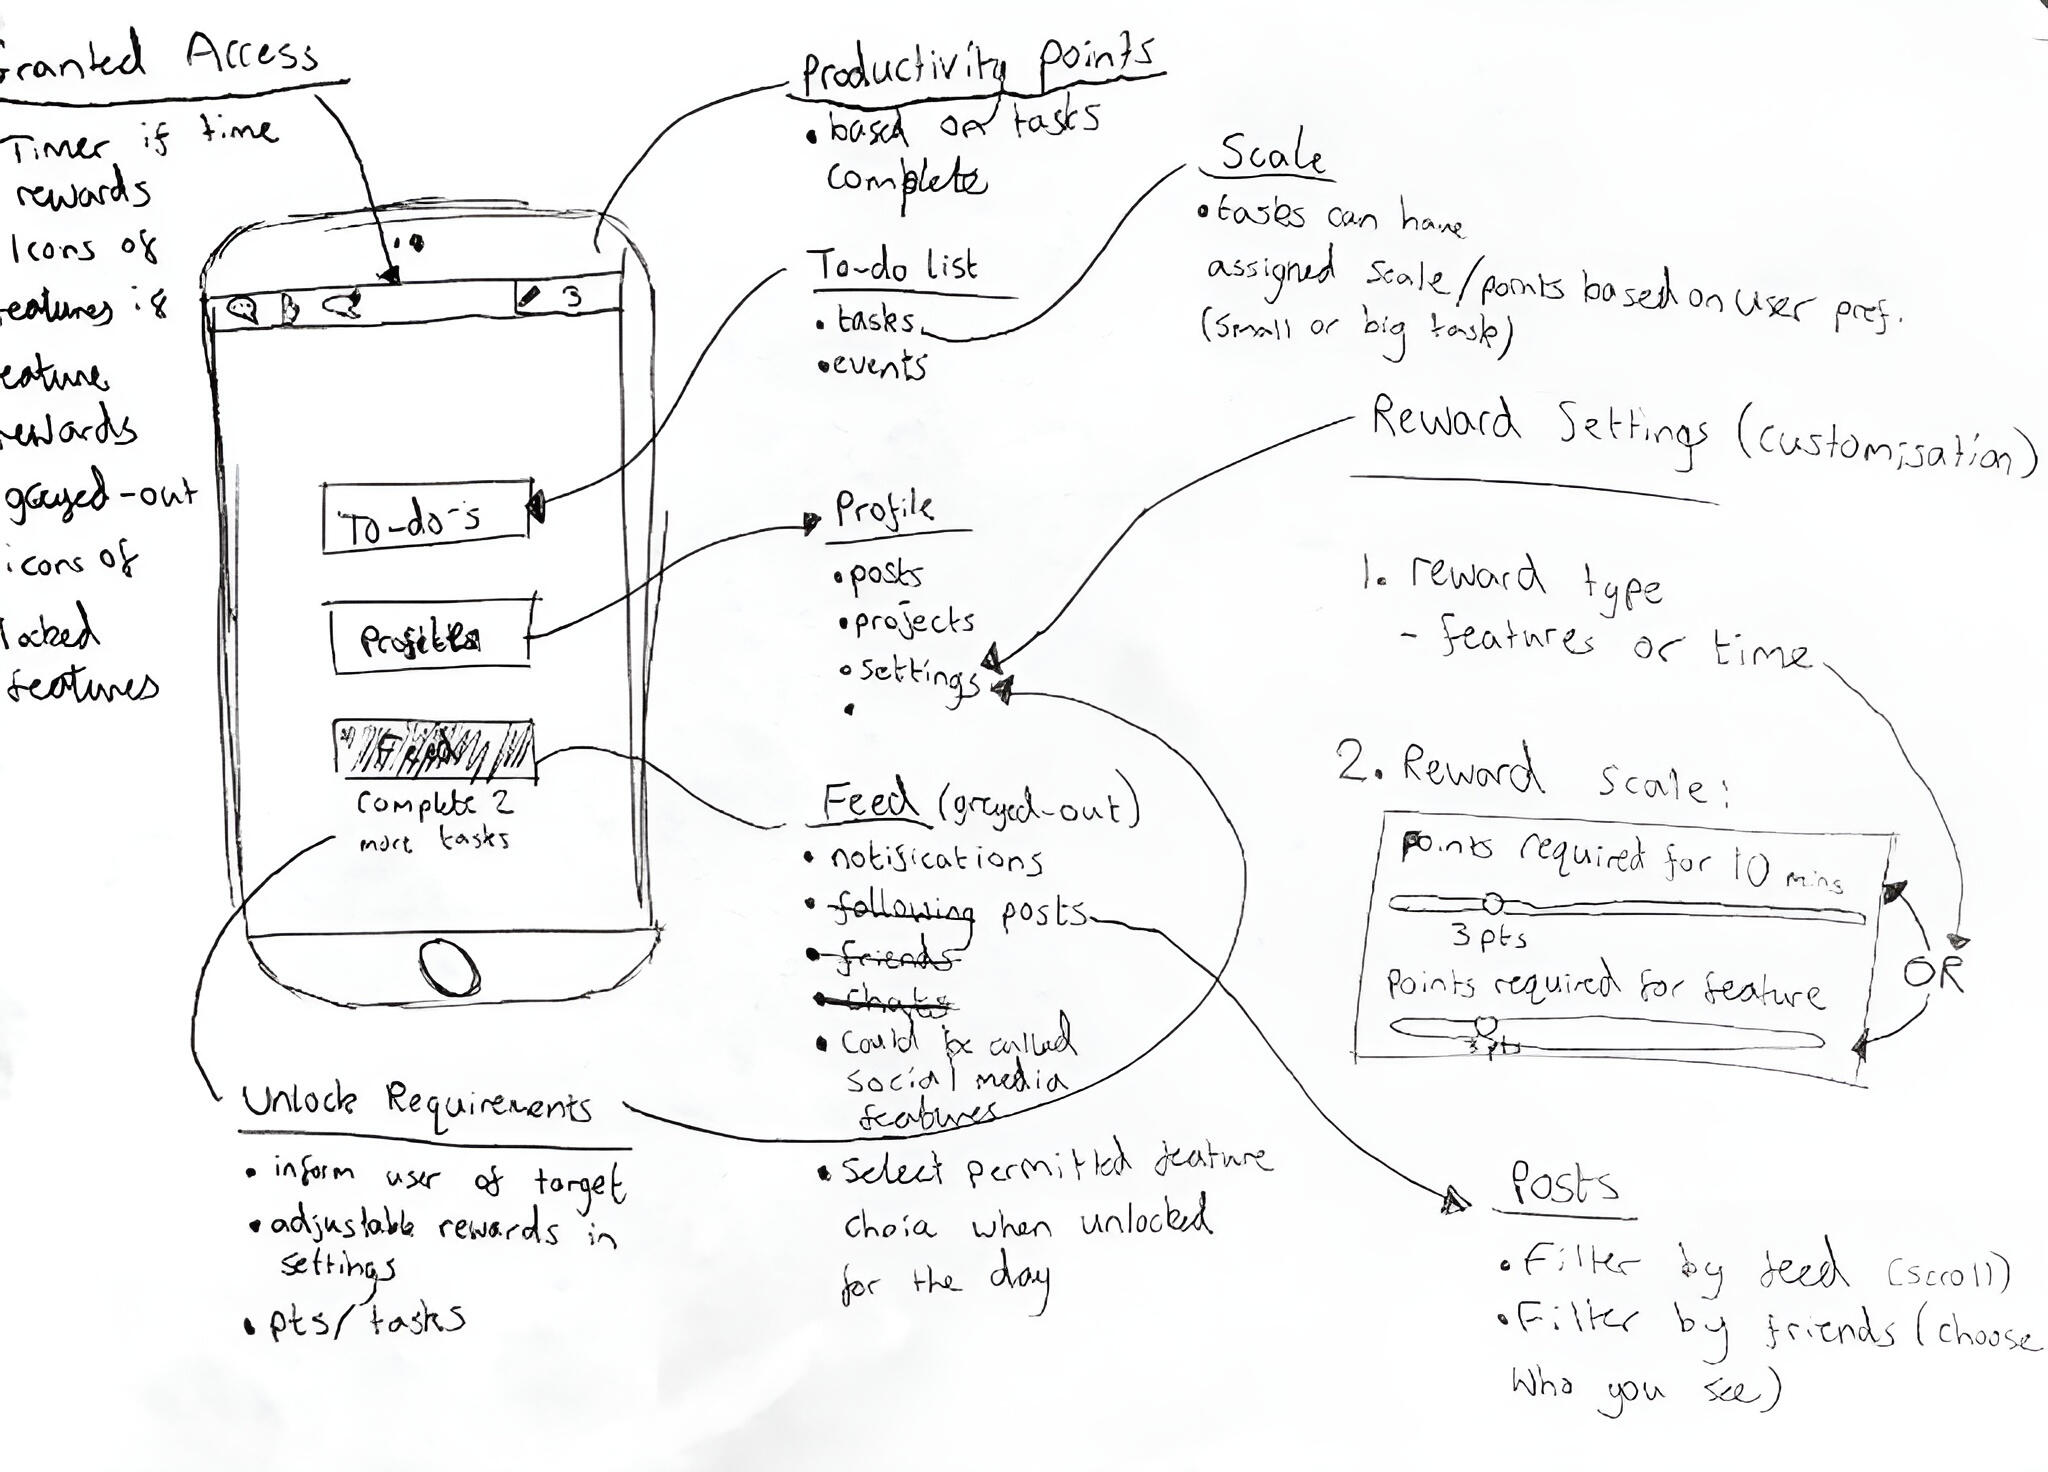 Granted Access
Timer if time
rewards
Icons of
features if
feature
rewards
greyed-out
icons of
locked
features
3
To-do's
Profile
Feed
Complete 2
more tasks
Unlock Requirements
• inform user of target
• adjustable rewards in
settings
• pts/tasks
Productivity points
• based on tasks
complete
To-do list
• tasks
• events
Scale
• tasks can have
assigned scale/points based on user pref.
(small or big task)
Profile
• posts
• projects
• settings
•
Feed (greyed-out)
• notifications
• following posts
• friends
• chats
• Could be called
social media
features
• Select permitted feature
choia when unlocked
for the day
Reward Settings (customisation)
1. reward type
- features or time
2. Reward scale:
Points required for 10 mins
3 pts
Points required for feature
3 pts
OR
Posts
• Filter by feed (scroll)
• Filter by friends (choose
who you see)